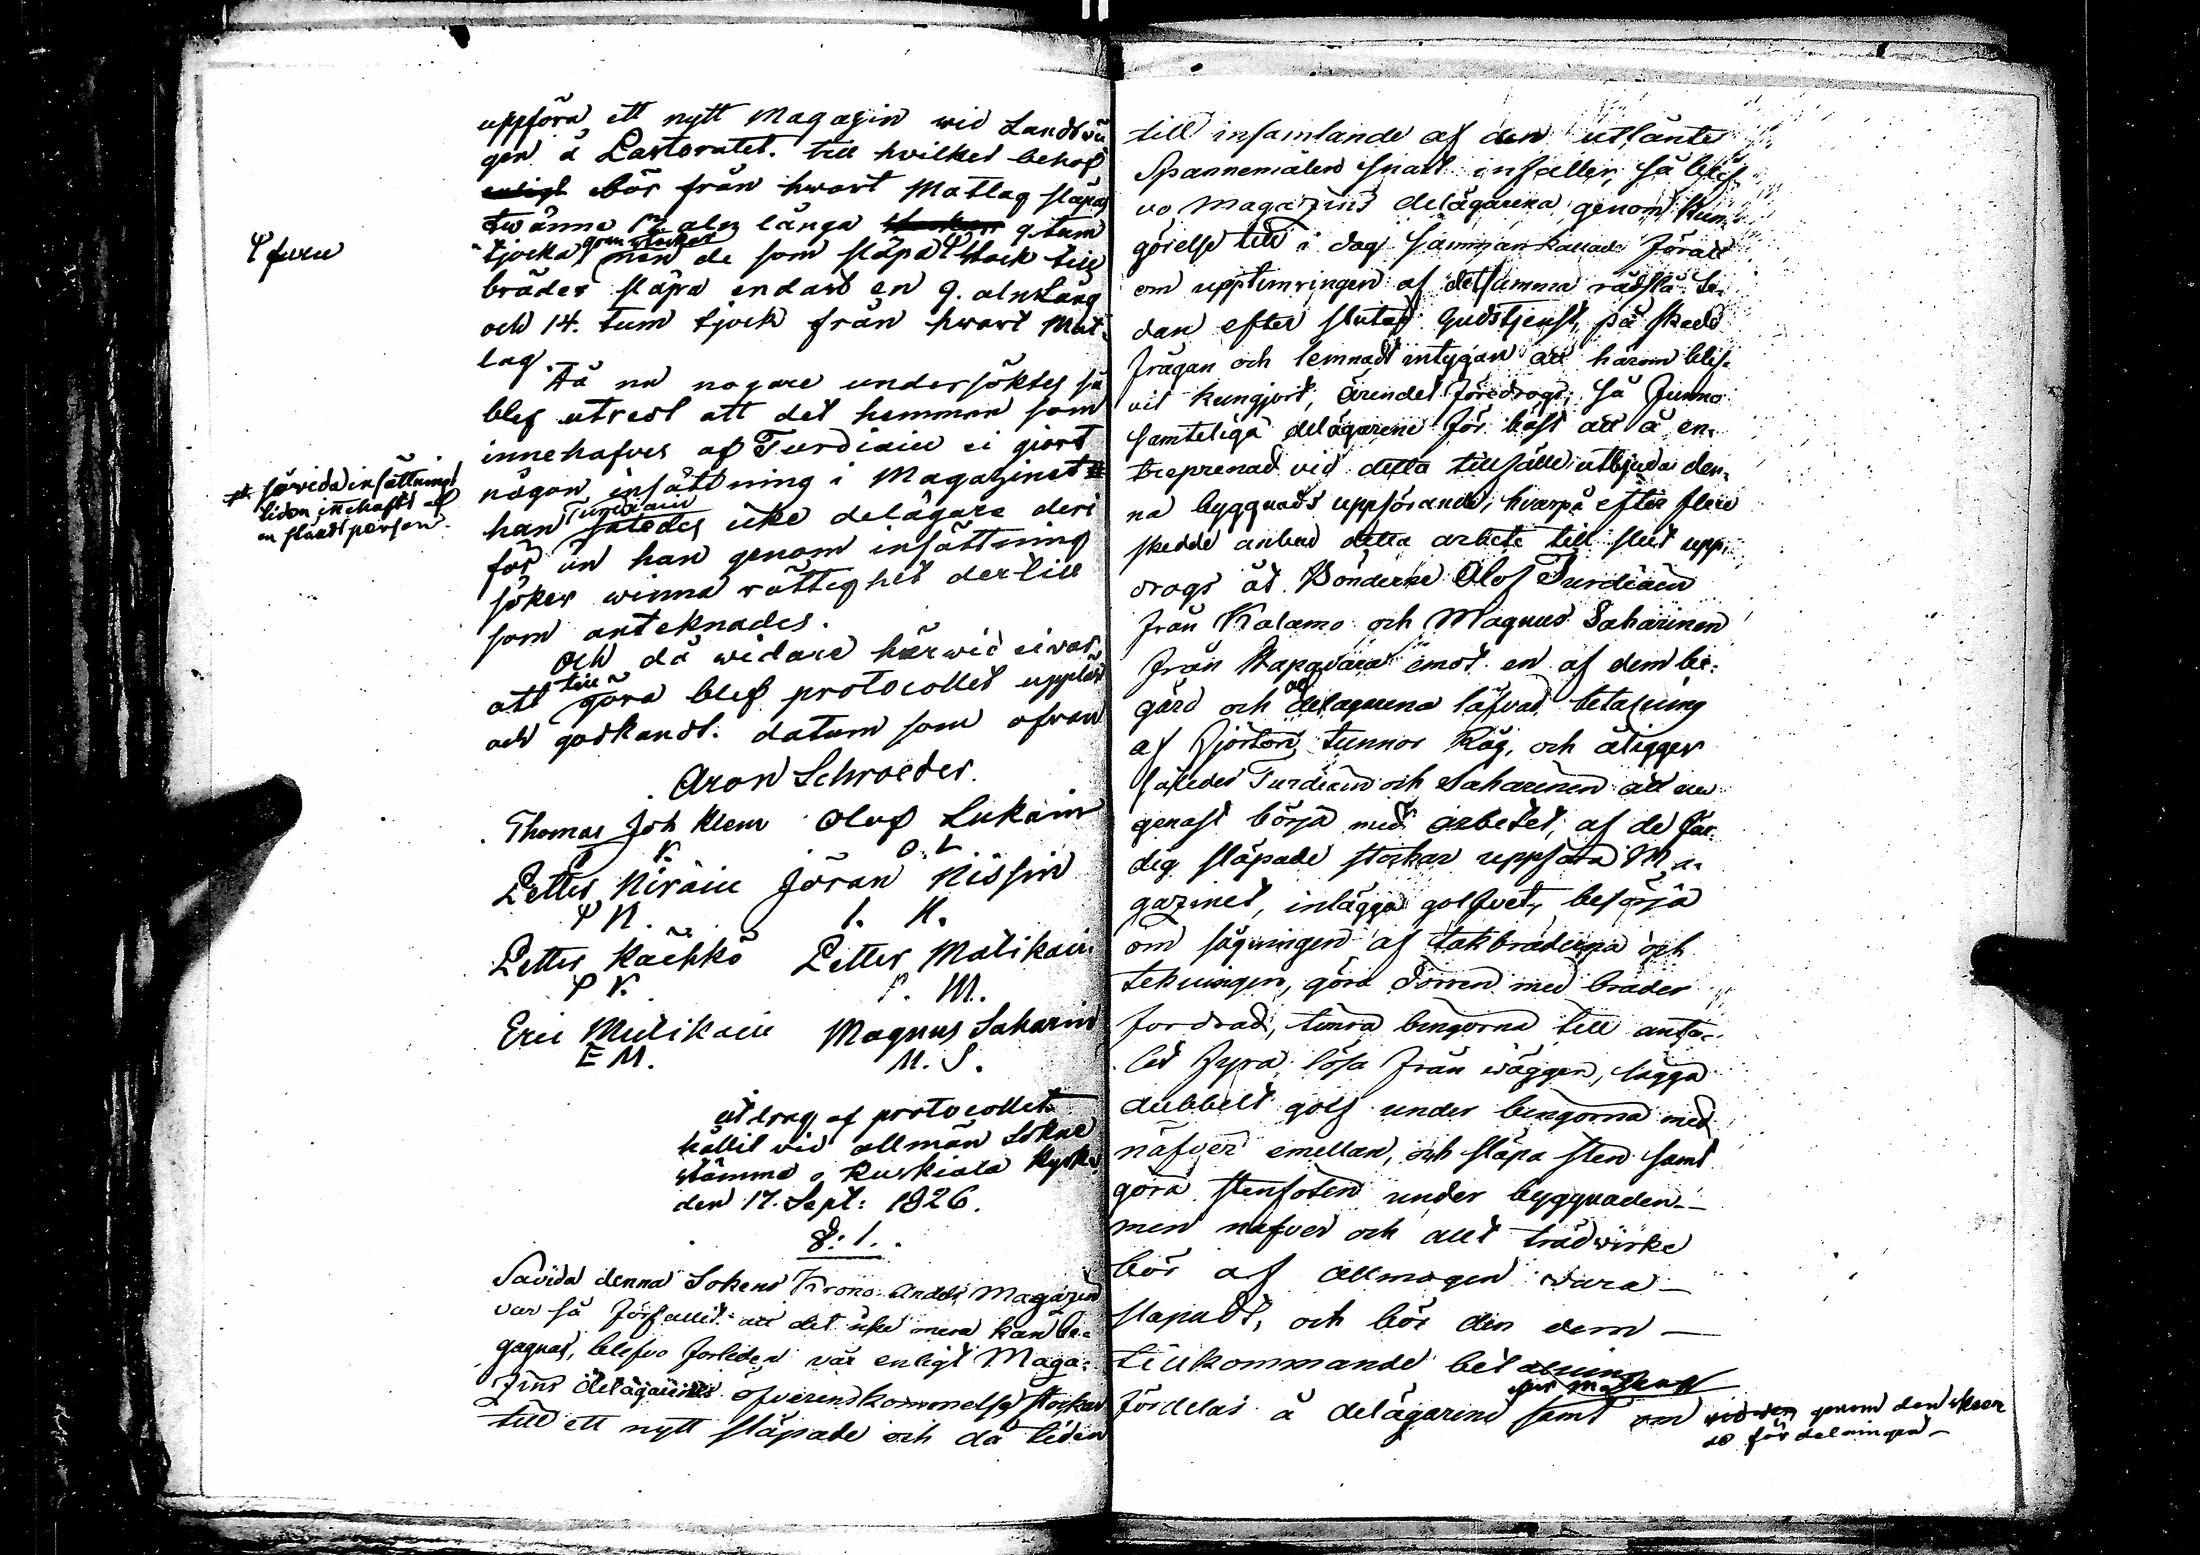 uppföra ett nytt Magazin wid Landswä
gen å Pastoratet. till hvilket behof
enligt bör från hwart Matlag släpas
twänne 12 aln långa stockar 9. tum
tjocka granstockar men de som släpa ⸿ stock till
⸿ furu
bräder släpa endast en 9. aln lång
och 14. tum tjock från hwart Mat-
lag.
Då nu nogare undersöktes så
blef utredt att det hemman som
innehafves af Turdiain ei giort
någon insättning i Magazinet #
# såvida insättnings
tiden innehafts af
en ståndsperson.
han Turdiain således icke delägare deri
för än han genom insättning
söker winna rättighet dertill
som anteknades.
Och då widare härwid ei war
att till göra blef protocollet uppläst
och godkändt. datum som ofwan
Aron Schroeder.
Thomas Joh Klem Oluf Lukain
K. O L
Petter Hirain Jöran Nissin
P H. I. N.
Petter Kaehkö Petter Matikain
P K. P. M.
Eric Mutikain Magnus Saharin
E M. M. S.
utdrag af protocollet
hållit vid allmän Sokne
stämma i Ruskiala Kyrka
den 17. Sept: 1826.
§: 1.
Såvida denna Sokens Krono Andels Magazin
var så förfallit att det icke mera kan be-
gagnas, blefvo förliden vår enligt Maga-
zins delägarnes öfverenskommelse stockar
till ett nytt släpade och då tiden
till insamlande af den utlånte
Spannemålen snart infaller, så blef-
vo Magazins delägarena genom Kun-
görelse till i dag sammankallade föratt
om upptimringen af detsamma rådslå. Se-
dan efter slutad Gudstjenst, på skedd
frågan och lemnadt intygan att härom blif-
vit kungjort, ärendet föredrogs, så funno
samteliga delägarene för bäst att å en-
treprenad vid detta tillfälle utbjuda den-
na byggnads uppförande, hvarpå efter flere
skedde anbud detta arbete till slut upp-
drogs åt Bönderne Olof Turdiain
från Kalamo och Magnus Saharinen
från Kapavara emot en af dem be-
gärd och af delagarena låfvad betalning
af fjorton tunnor Råg, och åligger
således Turdiain och Saharinen att nu
genast börja med arbetet, af de fär-
dig släpade stockar uppföra Ma-
gazinet, inlägga golfvet, besörja
om sågningen af takbräderna och
tekningen, göra dörren med bräder
fordrad, timra bingorna till anta-
let fyra lösa från wäggen, lägga
dubbelt golf under bingorna med
näfver emellan, och släpa sten samt
göra stenfoten under byggnaden-
men näfver och allt trädwirke
bör af Allmogen vara
släpadt, och bör den dem
tillkommande betalning
fördelas å delägarene per Matlag samt om vid den genom den skeer
de fördelningen